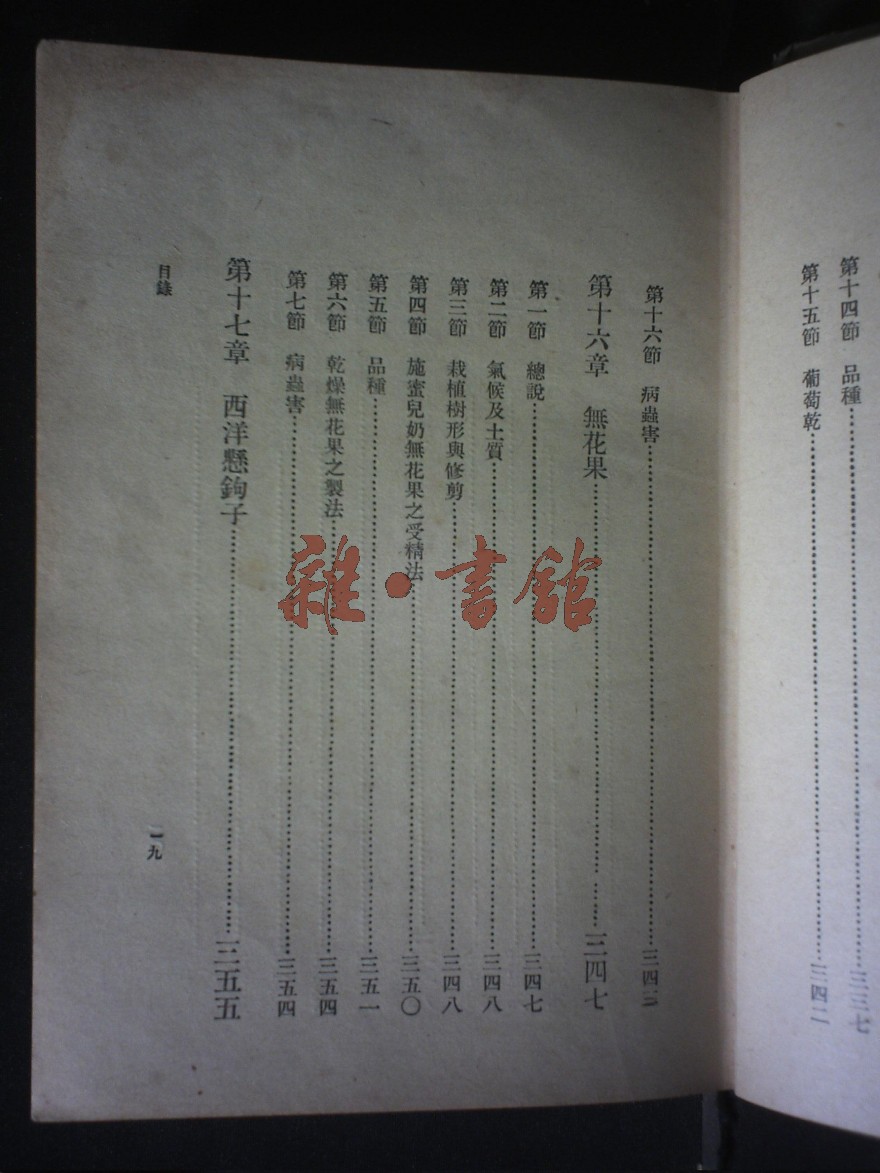 第十四節 品種……三三七
第十五節 葡萄乾……三四二
第十六節 病蟲害……三四三
第十六章 無花果……三四七
第一節 總說……三四七
第二節 氣候及土質……三四八
第三節 栽植樹形與修剪……三四八
第四節 施蜜兒奶無花果之受精法……三五〇
第五節 品種……三五一
第六節 乾燥無花果之製法……三五四
第七節 病蟲害……三五四
第十七章 西洋懸鉤子……三五五
目錄
一九
雜·書館